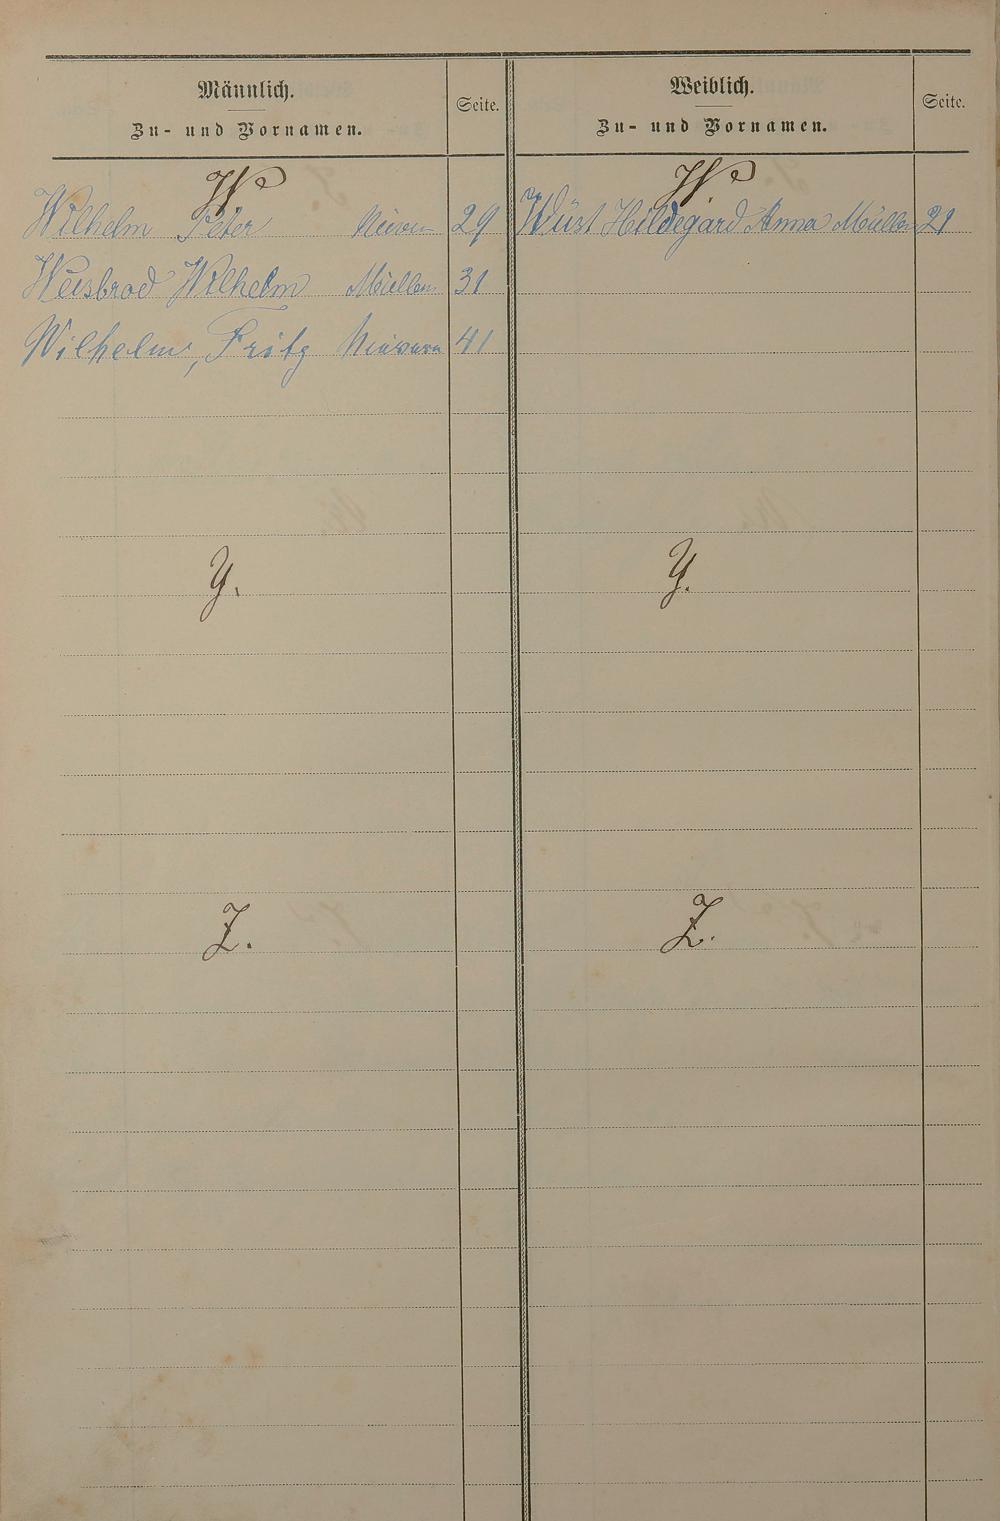 Männlich.
Zu- und Vornamen.
Seite.
W
Wilhelm Peter 29
Weisbrod Wilhelm Müllen 31
Wilhelm, Fritz Nievern 41
Y.
Z.
Weiblich.
Zu- und Vornamen.
Seite.
W
Wüst Hildegard Anna Müllen 21
Y.
Z.